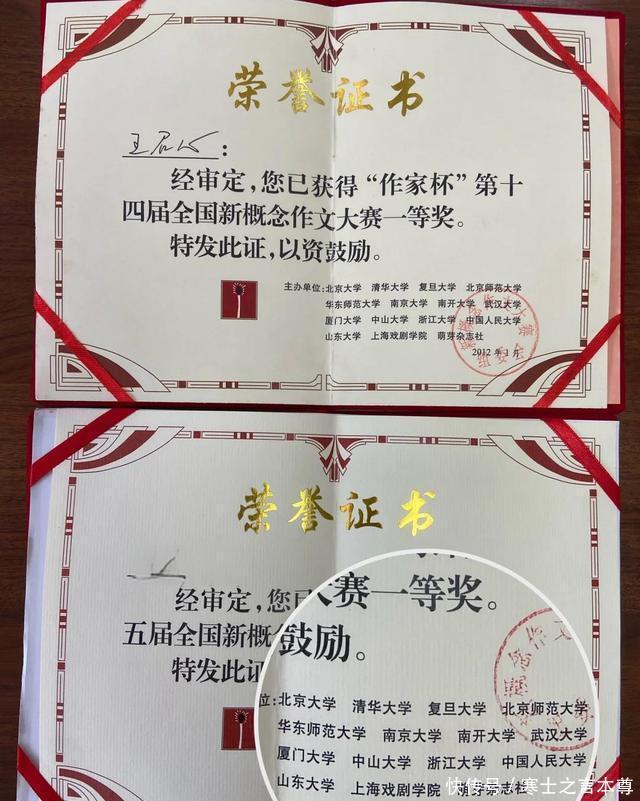 荣誉证书
王君心：
经审定，您已获得“作家杯”第十
四届全国新概念作文大赛一等奖。
特发此证，以资鼓励。
主办单位:北京大学 清华大学 复旦大学 北京师范大学
华东师范大学 南京大学 南开大学 武汉大学
厦门大学 中山大学 浙江大学 中国人民大学
山东大学 上海戏剧学院 萌芽杂志社
组委会
2012年1月
荣誉证书
经审定，您已
大赛一等奖。
五届全国新概念
鼓励。
特发此证
位:北京大学 清华大学 复旦大学 北京师范大学
华东师范大学 南京大学 南开大学 武汉大学
厦门大学 中山大学 浙江大学 中国人民大学
山东大学 上海戏剧学院 萌芽杂志社
快传号/寒士之言本尊